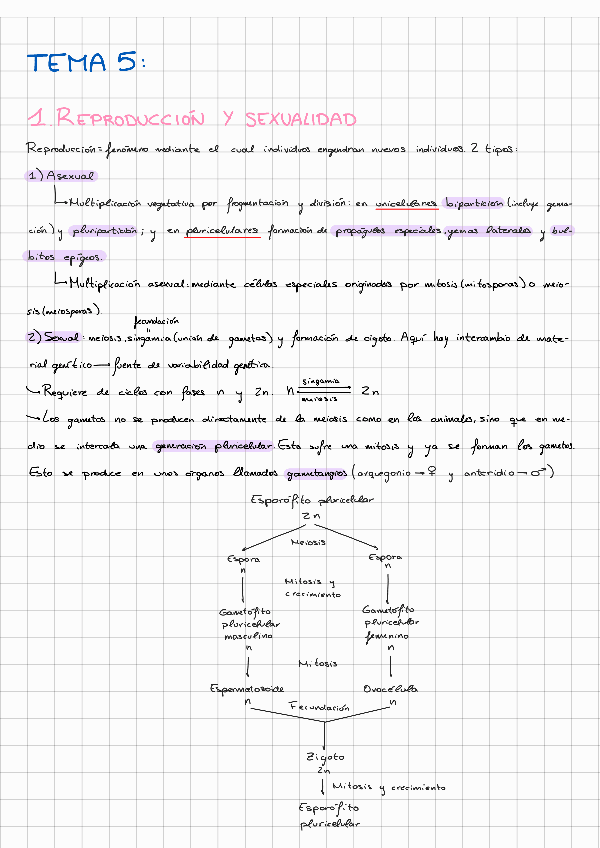 TEMA 5:
1. REPRODUCCIÓN Y SEXUALIDAD
Reproducción = fenómeno mediante el cual individuos engendran nuevos individuos. 2 tipos:
1) Asexual
Multiplicación vegetativa por fragmentación y división: en unicelulares bipartición (incluye gema-
ción) y pluripartición; y en pluricelulares formación de propágulos especiales, yemas laterales y bul-
bitos epígeos.
Multiplicación asexual: mediante células especiales originadas por mitosis (mitosporas) o meio-
sis (meiosporas).
fecundación
2) Sexual: meiosis, singamia (unión de gametos) y formación de cigoto. Aquí hay intercambio de mate-
rial genético → fuente de variabilidad genética.
Requiere de ciclos con fases n y 2n. n singamia meiosis 2n
Los gametos no se producen directamente de la meiosis como en los animales, sino que en me-
dio se intercala una generación pluricelular. Esta sufre una mitosis y ya se forman los gametos.
Esto se produce en unos órganos llamados gametangios (arquegonio → ♀ y anteridio → ♂)
Esporófito pluricelular
2n
Meiosis
Espora Espora
n n
Mitosis y
crecimiento
Gametófito Gametófito
pluricelular pluricelular
masculino femenino
n n
Mitosis
Espermatozoide Ovocélula
n Fecundación n
Zigoto
2n
Mitosis y crecimiento
Esporófito
pluricelular